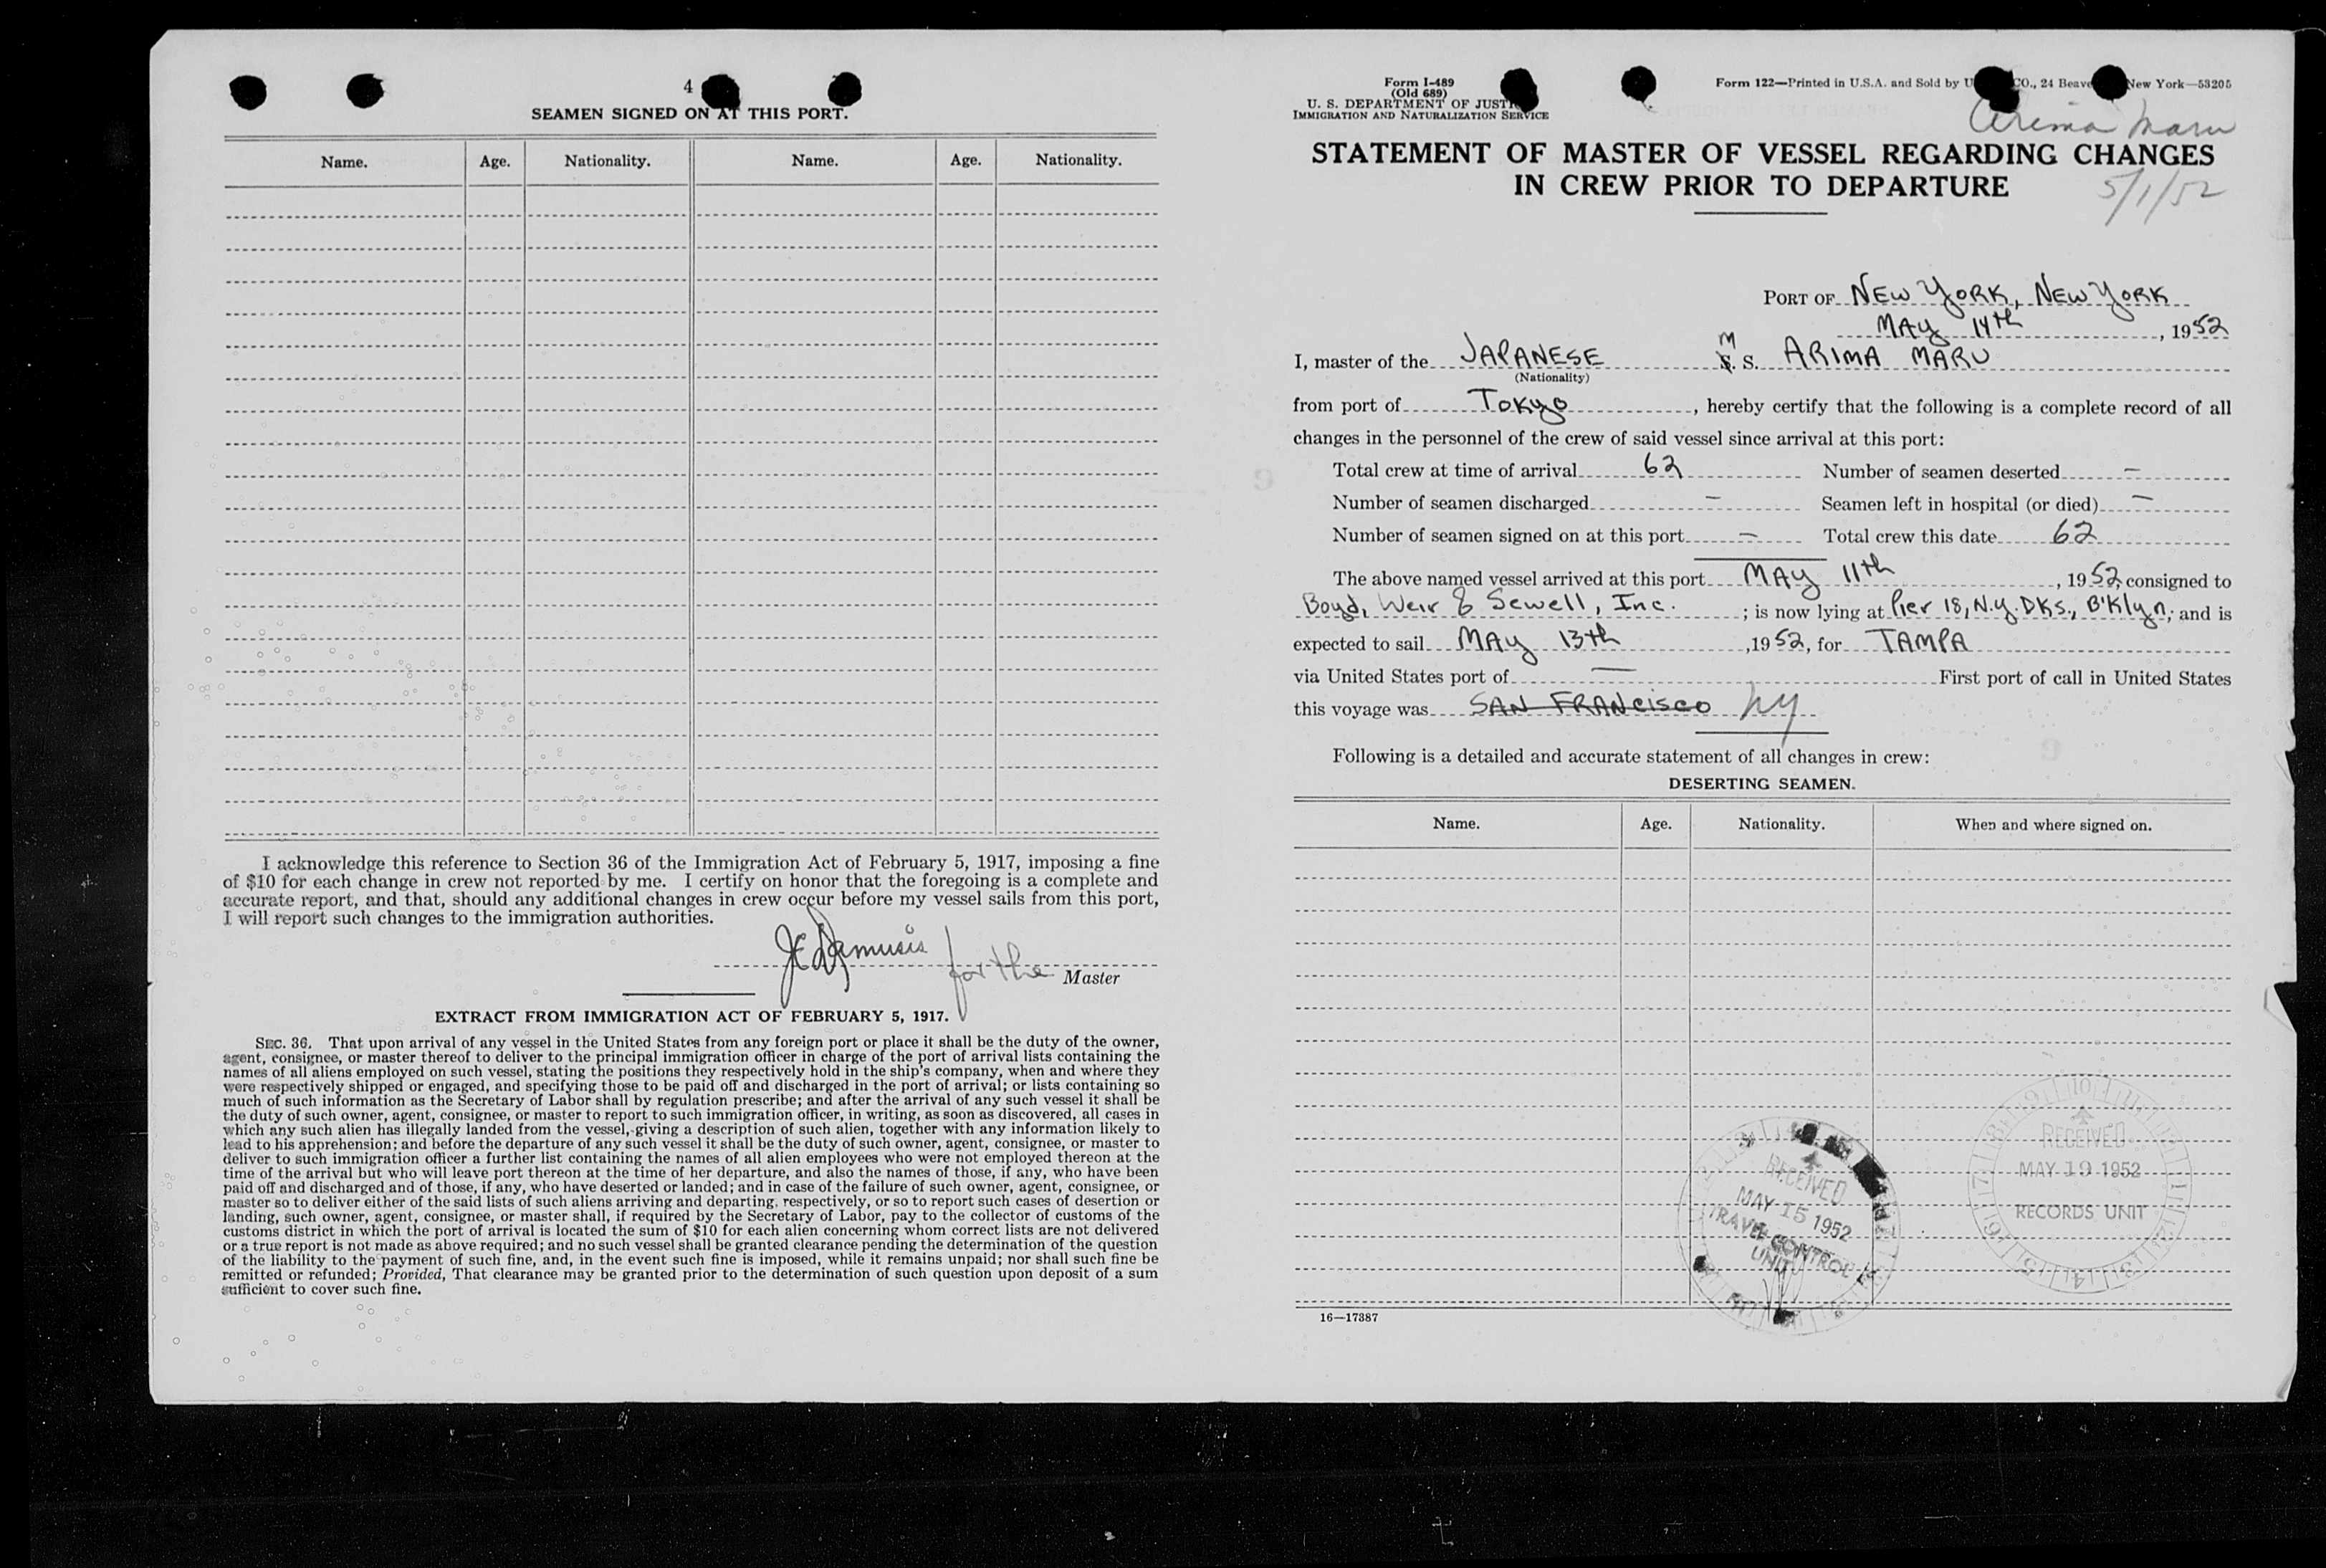 4
SEAMEN SIGNED ON AT THIS PORT.
Name. Age. Nationality. Name. Age. Nationality.
I acknowledge this reference to Section 36 of the Immigration Act of February 5, 1917, imposing a fine
of $10 for each change in crew not reported by me. I certify on honor that the foregoing is a complete and
accurate report, and that, should any additional changes in crew occur before my vessel sails from this port,
I will report such changes to the immigration authorities.
for the Master
EXTRACT FROM IMMIGRATION ACT OF FEBRUARY 5, 1917.
SEC. 36. That upon arrival of any vessel in the United States from any foreign port or place it shall be the duty of the owner,
agent, consignee, or master thereof to deliver to the principal immigration officer in charge of the port of arrival lists containing the
names of all aliens employed on such vessel, stating the positions they respectively hold in the ship's company, when and where they
were respectively shipped or engaged, and specifying those to be paid off and discharged in the port of arrival; or lists containing so
much of such information as the Secretary of Labor shall by regulation prescribe; and after the arrival of any such vessel it shall be
the duty of such owner, agent, consignee, or master to report to such immigration officer, in writing, as soon as discovered, all cases in
which any such alien has illegally landed from the vessel, giving a description of such alien, together with any information likely to
lead to his apprehension; and before the departure of any such vessel it shall be the duty of such owner, agent, consignee, or master to
deliver to such immigration officer a further list containing the names of all alien employees who were not employed thereon at the
time of the arrival but who will leave port thereon at the time of her departure, and also the names of those, if any, who have been
paid off and discharged and of those, if any, who have deserted or landed; and in case of the failure of such owner, agent, consignee, or
master so to deliver either of the said lists of such aliens arriving and departing, respectively, or so to report such cases of desertion or
landing, such owner, agent, consignee, or master shall, if required by the Secretary of Labor, pay to the collector of customs of the
customs district in which the port of arrival is located the sum of $10 for each alien concerning whom correct lists are not delivered
or a true report is not made as above required; and no such vessel shall be granted clearance pending the determination of the question
of the liability to the payment of such fine, and, in the event such fine is imposed, while it remains unpaid; nor shall such fine be
remitted or refunded; Provided, That clearance may be granted prior to the determination of such question upon deposit of a sum
sufficient to cover such fine.
Form I-489
(Old 689)
U. S. DEPARTMENT OF JUSTICE
IMMIGRATION AND NATURALIZATION SERVICE
Form 122—Printed in U.S.A. and Sold by CO., 24 Beaver New York—53205
Arima Maru
STATEMENT OF MASTER OF VESSEL REGARDING CHANGES
IN CREW PRIOR TO DEPARTURE
5/1/52
PORT OF NEW YORK, NEW YORK
MAY 14th, 1952
I, master of the JAPANESE M S. S. ARIMA MARU
(Nationality)
from port of Tokyo, hereby certify that the following is a complete record of all
changes in the personnel of the crew of said vessel since arrival at this port:
Total crew at time of arrival 62 Number of seamen deserted —
Number of seamen discharged — Seamen left in hospital (or died) —
Number of seamen signed on at this port — Total crew this date 62
The above named vessel arrived at this port MAY 11th, 1952, consigned to
Boyd, Weir & Sewell, Inc.; is now lying at Pier 18, N.Y. DKs., B'Klyn; and is
expected to sail MAY 13th, 1952, for TAMPA
via United States port of — First port of call in United States
this voyage was SAN FRANCISCO NY
Following is a detailed and accurate statement of all changes in crew:
DESERTING SEAMEN.
Name. Age. Nationality. When and where signed on.
RECEIVED
MAY 15 1952
TRAVEL CONTROL
UNIT
RECEIVED
MAY 19 1952
RECORDS UNIT
16—17387